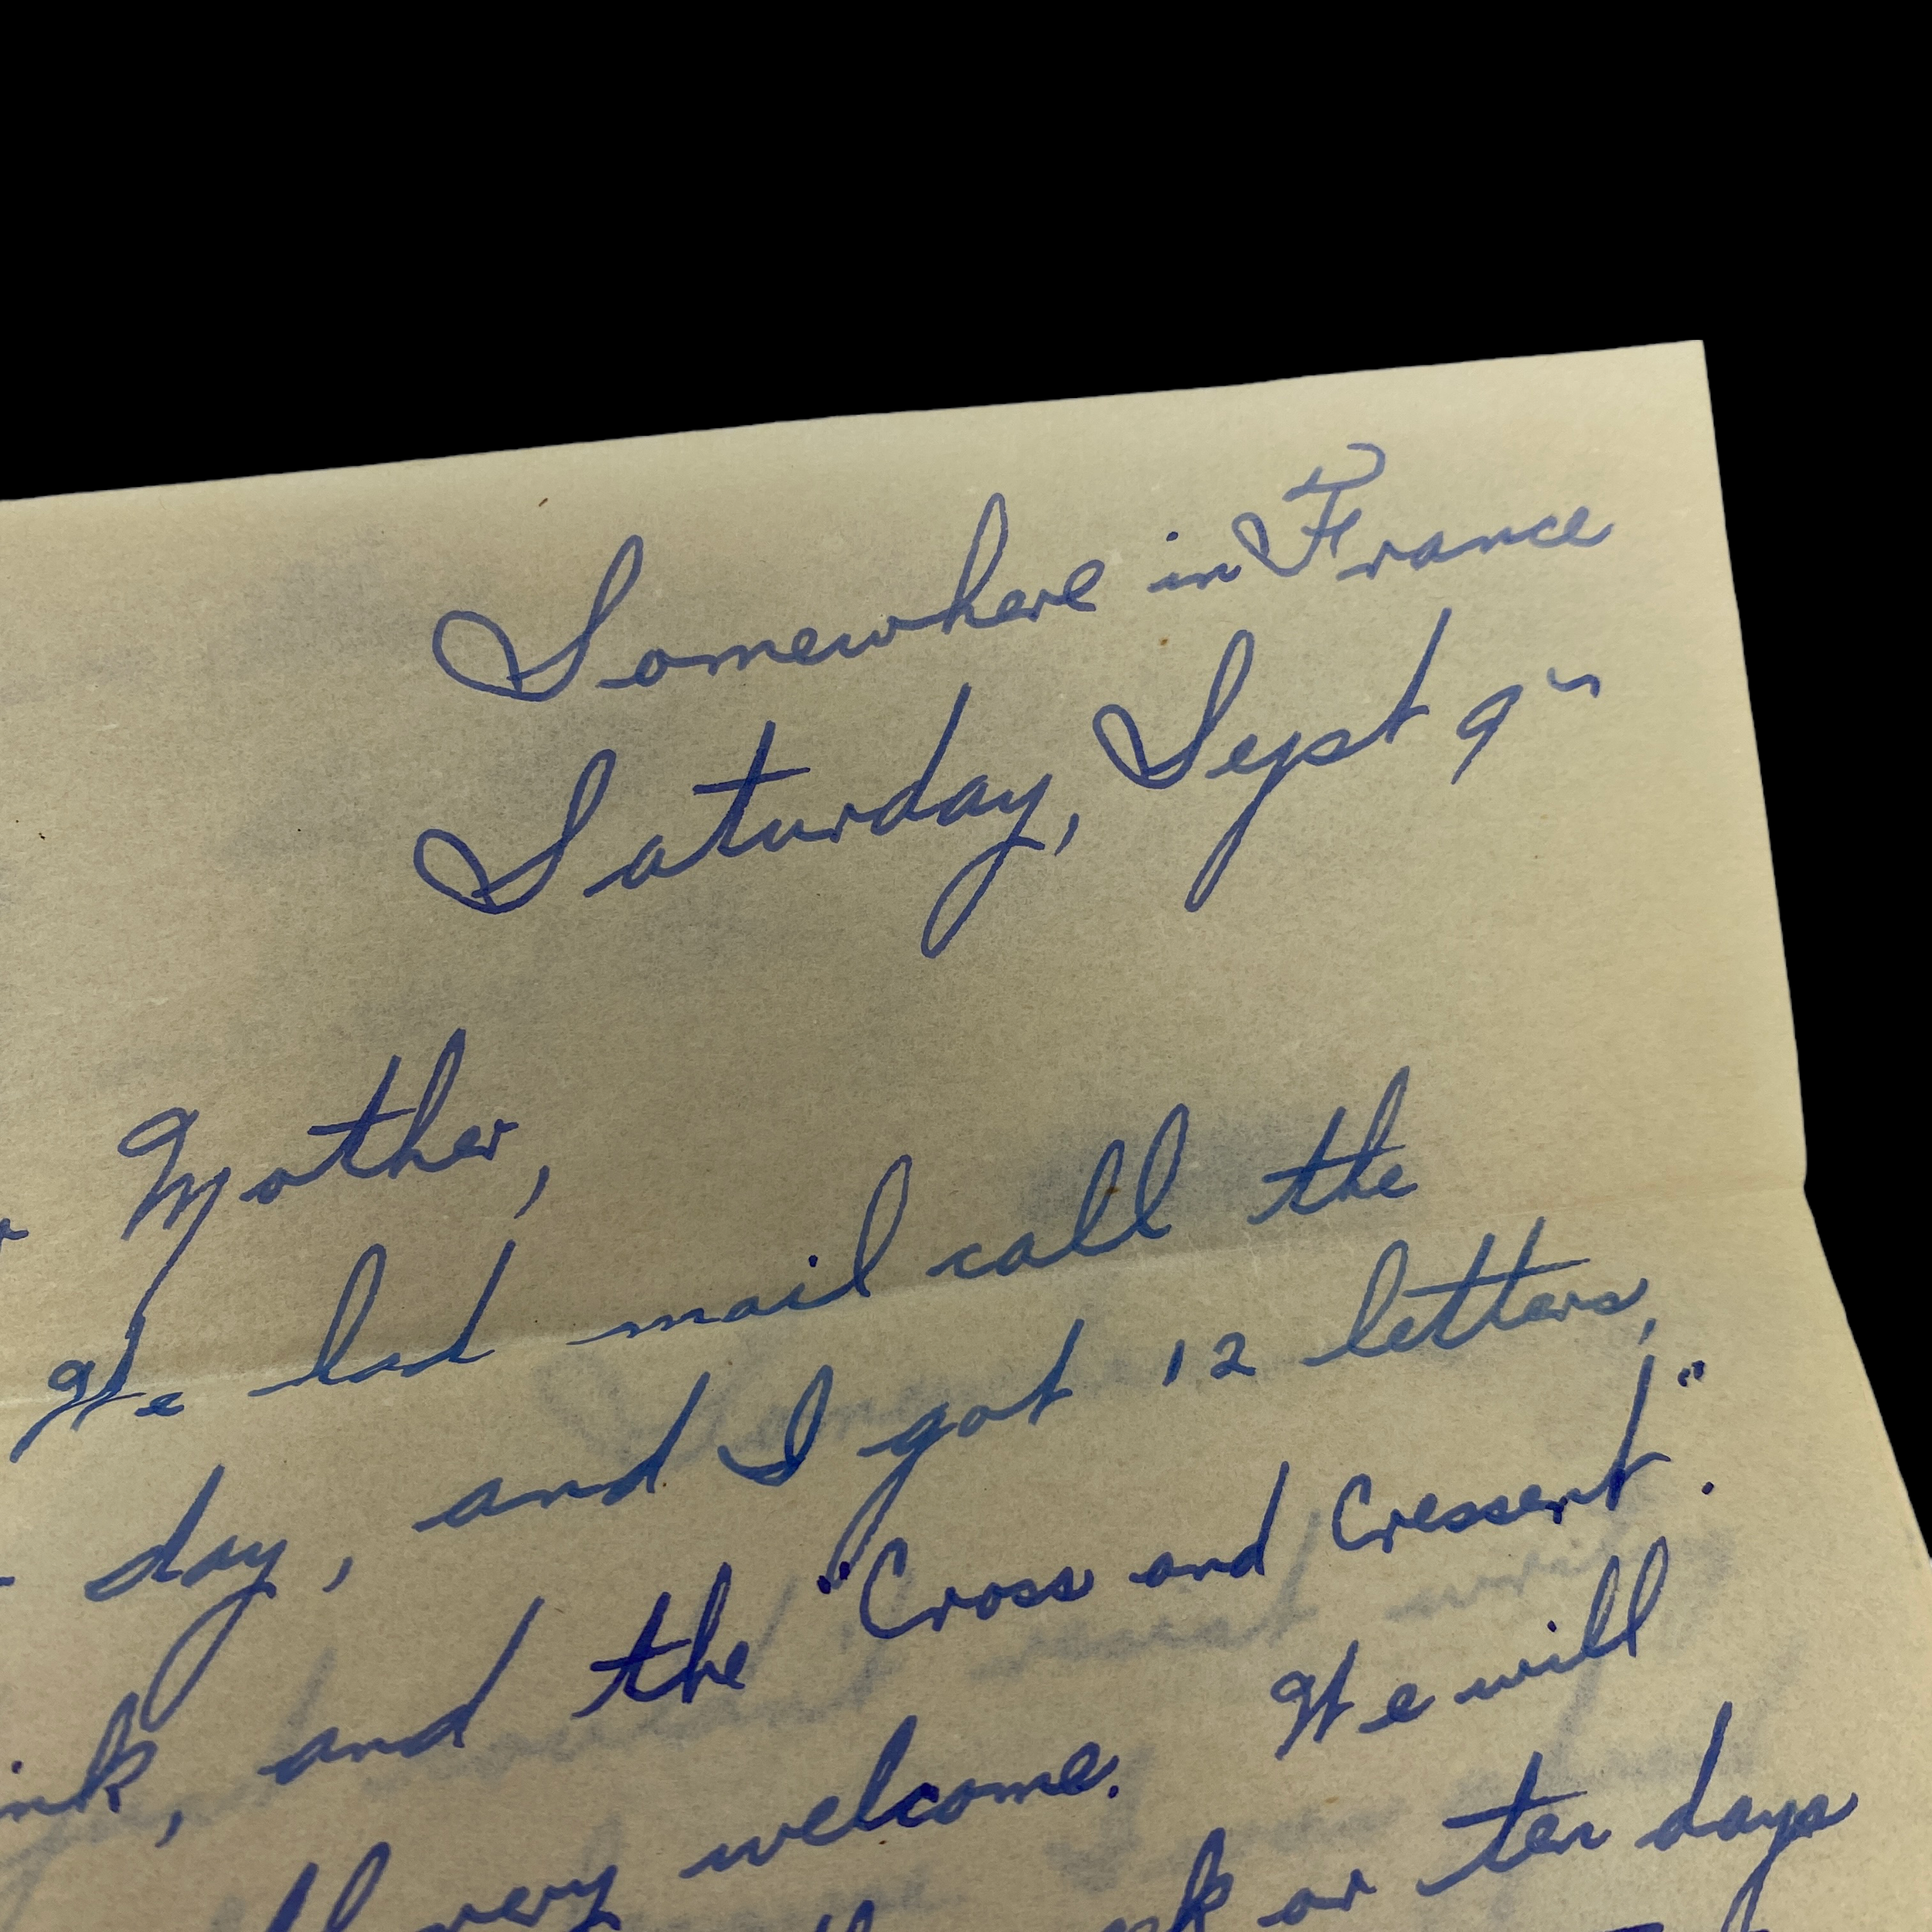 Somewhere in France
Saturday, Sept 9th
Mother,
We had mail call the
day, and I got 12 letters,
and the "Cross and Cressent".
very welcome. We will
or ten days